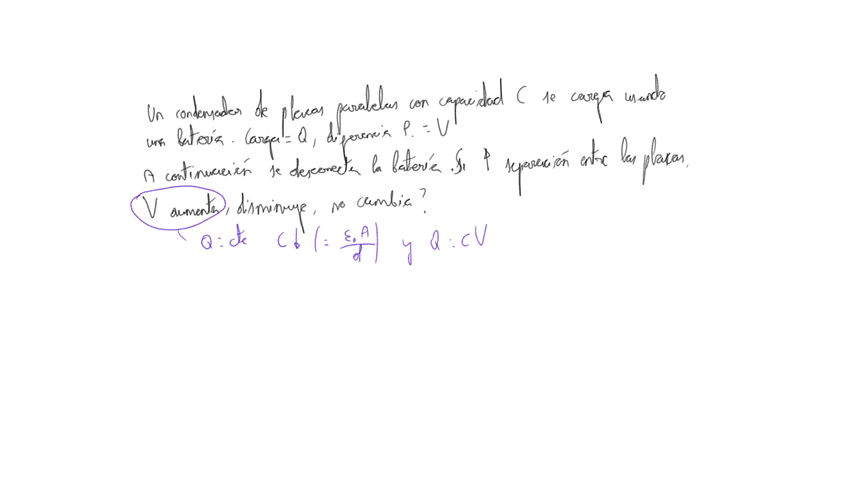 Un condensador de placas paralelas con capacidad C se carga usando
una batería. Carga = Q, diferencia P. = V
A continuación se desconecta la batería. Si ↑ separación entre las placas,
V aumenta, disminuye, no cambia?
Q = cte C↓ (= ε₀ A / d) y Q = CV